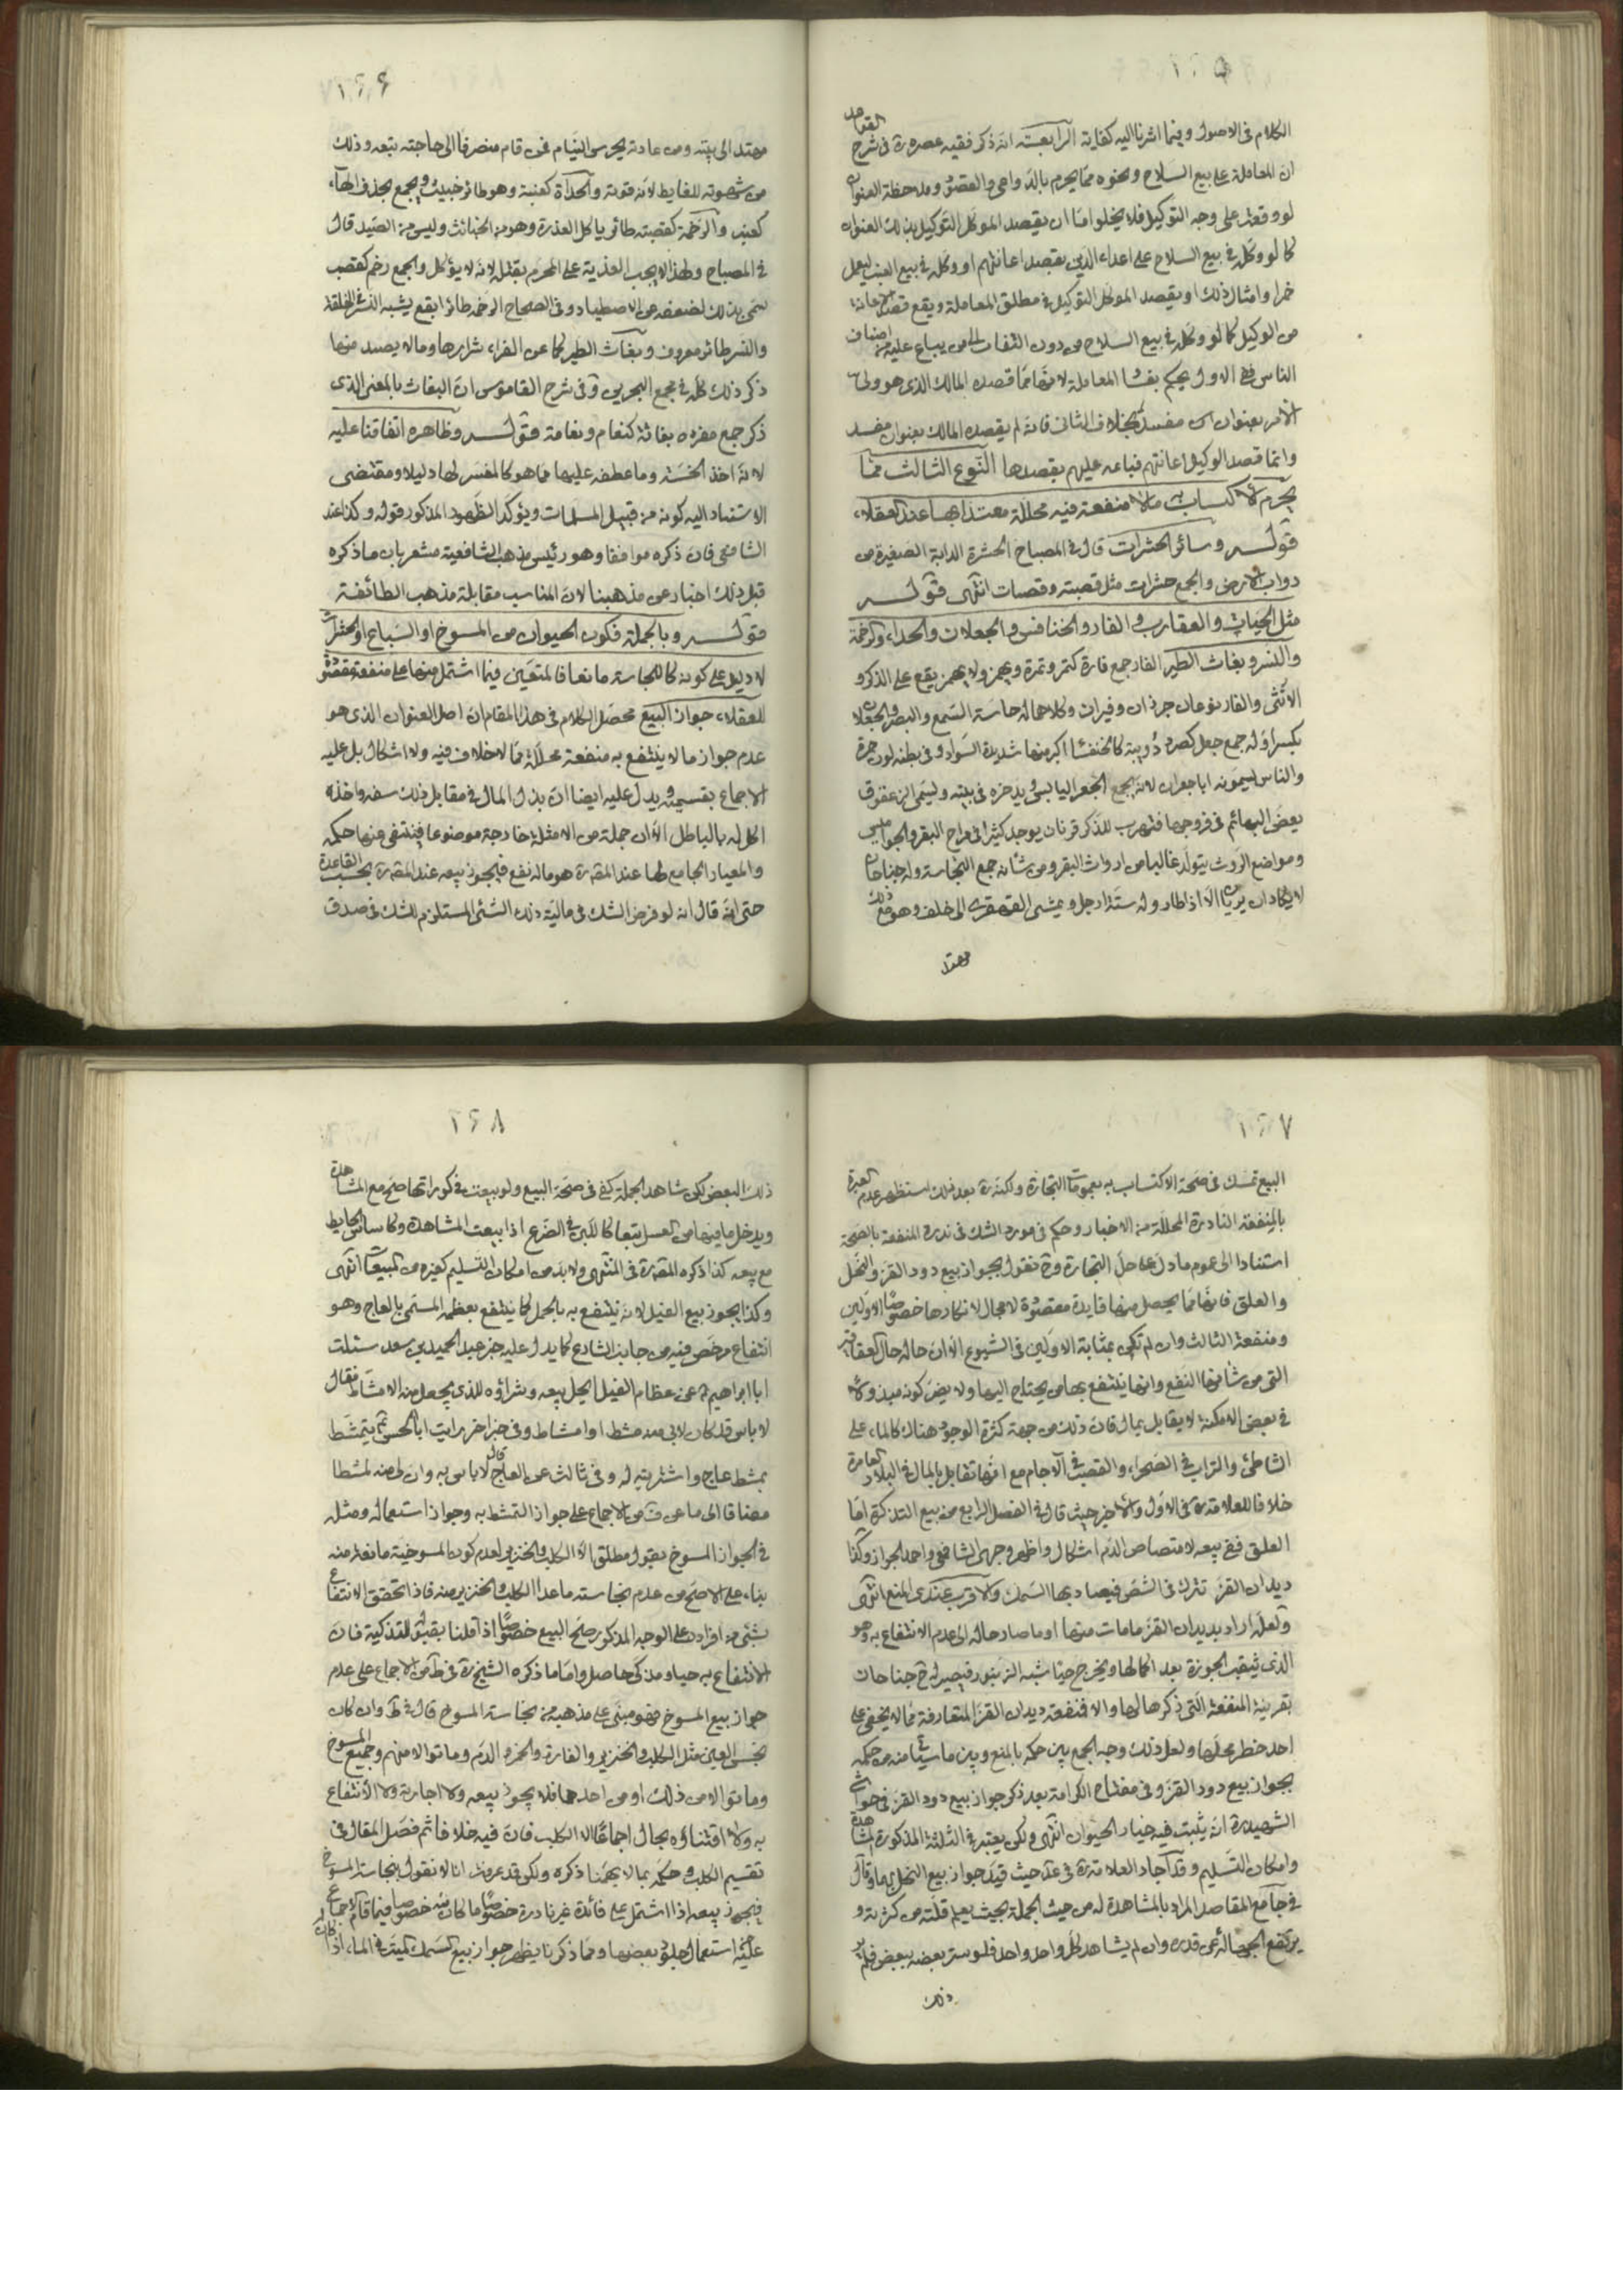 ١٢٥
الكلام فى الاصول وفيما اشرنا اليه كفاية الرابعة انه ذكر فقيه عصره ره فى شرح القواعد
ان المعاملة على بيع السلاح ونحوه مما يحرم بالدواعى والقصود وملاحظة العنوان
لو وقعت على وجه التوكيل فلا يخلو اما ان يقصد الموكل التوكيل بذلك العنوان
كما لو وكل فى بيع السلاح على اعداء الدين بقصد اعانتهم او وكله فى بيع العنب ليعمل
خمرا وامثال ذلك او يقصد الموكل التوكيل فى مطلق المعاملة ويقع قصد الاعانة
من الوكيل كما لو وكله فى بيع السلاح من دون التفات الى من يباع عليه من اصناف
الناس ففى الاول يحكم بفساد المعاملة لانها مما قصده المالك الذى هو ولى
الامر بعنوان مفسد بخلاف الثانى فانه لم يقصده المالك بعنوان مفسد
وانما قصد الوكيل اعانتهم فباعه عليهم بقصدها النوع الثالث مما
يحرم الاكتساب به ما لا منفعة فيه محللة معتدا بها عند العقلاء
قوله وسائر الحشرات قال فى المصباح الحشرة الدابة الصغيرة من
دواب الارض والجمع حشرات مثل قصبة وقصبات انتهى قوله
مثل الحيات والعقارب والفار والخنافس والجعلان والحداء والرخمة
والنسر وبغاث الطير الفار جمع فارة كتمر وتمرة ويهمز ولا يهمز يقع على الذكر و
الانثى والفار نوعان جرذان وفيران وكلاهما له حاسة السمع والبصر والجعلان
بكسر اوله جمع جعل كصرد دويبة كالخنفسا اكبر منها شديدة السواد وفى بطنه لون حمرة
والناس يسمونه ابا جعران لانه يجمع الجعر اليابس ويدخره فى بيته ويسمى الزعقوق
يعض البهائم فى فروجها فتهرب للذكر قرنان يوجد كثيرا فى مراح البقر والجواميس
ومواضع الروث يتولد غالبا من ارواث البقر ومن شانه جمع النجاسة وله جناحان
لا يكادان يريان الا اذا طار وله ستة ارجل ويمشى القهقرى الى خلف وهو مع ذلك
مهتد
١٢٦
مهتد الى بيته ومن عادته يحرس النيام فمن قام منصرفا الى حاجته تبعه وذلك
من شهوته للغايط لانه قوته والحداة كعنبة وهو طائر خبيث ويجمع بحذف الهاء
كعنب والرخمة كقصبة طائر ياكل العذرة وهو من الخبائث وليس من الصيد قال
فى المصباح ولهذا لا يجب الفدية على المحرم بقتله لانه لا يؤكل والجمع رخم كقصب
سمى بذلك لضعفه عن الاصطياد وفى الصحاح الرخمة طائر ابقع يشبه النسر فى الخلقة
والنسر طائر معروف وبغاث الطير كما عن الفراء شرارها وما لا يصيد منها
ذكر ذلك كله فى مجمع البحرين وفى شرح القاموس ان البغاث بالمعنى الذى
ذكر جمع مفرده بغاثة كنعام ونعامة قوله وظاهره اتفاقنا عليه
لانه اخذ الخسة وما عطف عليها مما هو كالمفسر لها دليلا ومقتضى
الاستناد اليه كونه من قبيل المسلمات ويؤكد الظهور المذكور قوله وكذا عند
الشافعى فان ذكره موافقا وهو رئيس مذهب الشافعية مشعر بان ما ذكره
قبل ذلك اخبار عن مذهبنا لان المناسب مقابلة مذهب الطائفة
قوله وبالجملة فكون الحيوان من المسوخ او السباع او الحشرات
لا دليل على كونه كالنجاسة مانعا فالمتعين فيما اشتمل منها على منفعة مقصودة
للعقلاء جواز البيع محصل الكلام فى هذا المقام ان اصل العنوان الذى هو
عدم جواز ما لا ينتفع به منفعة محللة مما لا خلاف فيه ولا اشكال بل عليه
الاجماع بقسميه ويدل عليه ايضا ان بذل المال فى مقابل ذلك سفه واخذه
اكل له بالباطل الا ان جملة من الامثلة خارجة موضوعا فينتفى منها حكمه
والمعيار الجامع لها عند المقه ره هو ما له نفع فيجوز بيعه عند المقه ره بحسب القاعدة
حتى انه قال انه لو فرض الشك فى مالية ذلك الشئ المستلزم للشك فى صدق
١٢٧
البيع تمسك فى صحة الاكتساب به بعمومات التجارة ولكنه ره بعد ذلك استظهر عدم العبرة
بالمنفعة النادرة المحللة من الاخبار وحكم فى مورد الشك فى ندرة المنفعة بالصحة
استنادا الى عموم ما دل على حل التجارة وح نقول بجواز بيع دود القز والنحل
والعلق فانها مما يحصل منها فايدة مقصودة لا مجال لانكارها خصوصا الاولين
ومنفعة الثالث وان لم تكن بمثابة الاولين فى الشيوع الا ان حاله حال العقاقير
التى من شانها النفع وانها ينتفع بها من يحتاج اليها ولا يضر كونه مبذولا
فى بعض الامكنة لا يقابل بمال فان ذلك من جهة كثرة الوجود هناك كالماء على
الشاطئ والتراب فى الصحراء والقصب فى الآجام مع انها تقابل بالمال فى البلاد العامرة
خلافا للعلامة ره فى الاول والاخير حيث قال فى الفصل الرابع من بيع التذكرة اما
العلق ففى بيعه لامتصاص الدم اشكال واظهر وجهى الشافعى واحمد الجواز وكذا
ديدان القز تترك فى الشص فيصاد بها السمك والاقرب عندى المنع انتهى
ولعله اراد بديدان القز ما مات منها او ما صار حاله الى عدم الانتفاع به وهو
الذى يثقب الجوزة بعد اكمالها ويخرج حيا شبه الزنبور فيصير له ح جناحان
بقرينة المنفعة التى ذكرها لها والا فمنفعة ديدان القز المتعارفة مما لا يخفى على
احد خطر محلها ولعل ذلك وجه الجمع بين حكمه بالمنع وبين ما سيأتى منه من حكمه
بجواز بيع دود القز وفى مفتاح الكرامة بعد ذكر جواز بيع دود القز فى حواشى
الشهيد ره انه يثبت فيه خيار الحيوان انتهى ولكن يعتبر فى الثلثة المذكورة المشاهدة
وامكان التسليم وقد اجاد العلامة ره فى عد حيث قيد جواز بيع النحل بهما وقال
فى جامع المقاصد المراد بالمشاهدة له من حيث الجملة بحيث يعلم قلته من كثرته و
يرتفع الجهالة عن قدره وان لم يشاهد كل واحد واحد فلو ستر بعضه ببعض فلم ير
ذلك
١٢٨
ذلك البعض لكن شاهد الجملة كفى فى صحة البيع ولو بيعت فى كوراتها صح مع المشاهدة
ويدخل ما فيها من العسل تبعا كاللبن فى الضرع اذا بيعت المشاهدة وكاساس الحايط
مع بيعه كذا ذكره المقه ره فى المنتهى ولا بد من امكان التسليم كغيره من المبيعات انتهى
وكذا يجوز بيع الفيل لانه ينتفع به بالحمل كما ينتفع بعظمه المسمى بالعاج وهو
انتفاع مرخص فيه من جانب الشارع كما يدل عليه خبر عبد الحميد بن سعد سئلت
ابا ابراهيم ع عن عظام الفيل ايحل بيعه وشراؤه للذى يجعل منه الامشاط فقال
لا باس قد كان لابى منه مشط او امشاط وفى خبر اخر رايت ابا الحسن ع يتمشط
بمشط عاج واشتريته له وفى ثالث عن العاج قال لا باس به وان لى منه لمشطا
مضافا الى ما عن ف من الاجماع على جواز التمشط به وجواز استعماله ومثله
فى الجواز المسوخ بقول مطلق الا الكلب والخنزير لعدم كون المسوخية مانعة منه
بناء على الاصح من عدم نجاسة ما عدا الكلب والخنزير منه فاذا تحقق الانتفاع
بشئ من افراده على الوجه المذكور صح البيع خصوصا اذا قلنا بقبوله للتذكية فان
الانتفاع به حيا ومذكى حاصل واما ما ذكره الشيخ ره فى ط من الاجماع على عدم
جواز بيع المسوخ فهو مبنى على مذهبه من نجاسة المسوخ قال فى ط وان كان
نجس العين مثل الكلب والخنزير والفارة والخمر والدم وما توالد منهم وجميع المسوخ
وما توالد من ذلك او من احدهما فلا يجوز بيعه ولا اجارته ولا الانتفاع
به ولا اقتناؤه بحال اجماعا الا الكلب فان فيه خلافا ثم فصل المقال فى
تقسيم الكلب وحكمه بما لا يهمنا ذكره ولكن قد عرفت انا لا نقول بنجاسة المسوخ
فيجوز بيعه اذا اشتمل على فائدة غير نادرة خصوصا ما كان منه خصوصا فيما قام الاجماع
على استعمال جلود بعضها ومما ذكرنا يظهر جواز بيع السمك الميت فى الماء اذا كان